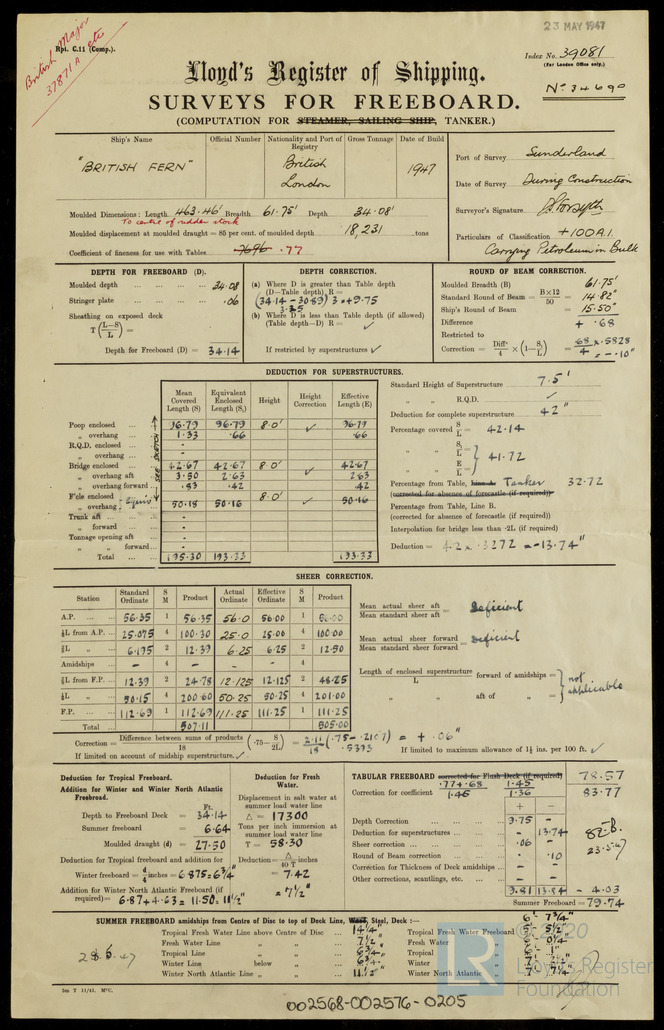 23 MAY 1947
Rpt. C.11 (Comp.).
British Major etc
37871A
Index No. 39081
(For London Office only.)
No. 34690
Lloyd's Register of Shipping.
SURVEYS FOR FREEBOARD.
(COMPUTATION FOR STEAMER, SAILING SHIP, TANKER.)
Ship's Name Official Number Nationality and Port of Registry Gross Tonnage Date of Build
"BRITISH FERN" British London 1947
Port of Survey Sunderland
Date of Survey During Construction
Surveyor's Signature
Particulars of Classification +100A.1.
Carrying Petroleum in Bulk
Moulded Dimensions: Length 463.46' Breadth 61.75' Depth 34.08'
To centre of rudder stock
Moulded displacement at moulded draught = 85 per cent. of moulded depth 18,231 tons
Coefficient of fineness for use with Tables .7696 .77
DEPTH FOR FREEBOARD (D).
Moulded depth 34.08
Stringer plate .06
Sheathing on exposed deck
T (L—S / L) =
Depth for Freeboard (D) = 34.14
DEPTH CORRECTION.
(a) Where D is greater than Table depth
(D—Table depth) R =
(34.14 - 30.89) 3 = +9.75
3.25
(b) Where D is less than Table depth (if allowed)
(Table depth—D) R = ✓
If restricted by superstructures ✓
ROUND OF BEAM CORRECTION.
Moulded Breadth (B) 61.75'
Standard Round of Beam = B×12 / 50 = 14.82"
Ship's Round of Beam = 15.50"
Difference + .68
Restricted to
Correction = Diffce / 4 × (1— S₁ / L) = .68 × .5828 / 4 = - .10"
DEDUCTION FOR SUPERSTRUCTURES.
Mean Covered Length (S) Equivalent Enclosed Length (S₁) Height Height Correction Effective Length (E)
Poop enclosed 96.79 96.79 8.0' ✓ 96.79
„ overhang 1.33 .66 .66
R.Q.D. enclosed -
„ overhang -
Bridge enclosed 42.67 42.67 8.0' ✓ 42.67
„ overhang aft 3.50 2.63 2.63
„ overhang forward .83 .42 .42
F'cle enclosed
„ overhang Equiv 50.18 50.16 8.0' ✓ 50.16
Trunk aft -
„ forward -
Tonnage opening aft -
„ „ forward -
Total 195.30 193.33 193.33
SEE SKETCH
Standard Height of Superstructure 7.5'
„ „ R.Q.D. ✓
Deduction for complete superstructure 42"
Percentage covered S / L = 42.14
„ „ S₁ / L = 41.72
„ „ E / L =
Percentage from Table, Line A. Tanker 32.72
(corrected for absence of forecastle (if required))
Percentage from Table, Line B.
(corrected for absence of forecastle (if required))
Interpolation for bridge less than ·2L (if required)
Deduction = 42 × .3272 = -13.74"
SHEER CORRECTION.
Station Standard Ordinate S M Product Actual Ordinate Effective Ordinate S M Product
A.P. 56.35 1 56.35 56.0 56.00 1 56.00
⅙L from A.P. 25.075 4 100.30 25.0 25.00 4 100.00
⅓L „ 6.195 2 12.39 6.25 6.25 2 12.50
Amidships - 4 - - - 4 -
⅓L from F.P. 12.39 2 24.78 12.125 12.125 2 48.25
⅙L „ 50.15 4 200.60 50.25 50.25 4 201.00
F.P. 112.69 1 112.69 111.25 111.25 1 111.25
Total 507.11 505.00
Mean actual sheer aft / Mean standard sheer aft = Deficient
Mean actual sheer forward / Mean standard sheer forward = Deficient
Length of enclosed superstructure / L forward of amidships =
„ „ aft of „ = } not applicable
Correction = Difference between sums of products / 18 (·75— S / 2L) = 2.11 / 18 (.75 - .2107) = + .06"
.5393
If limited on account of midship superstructure. ✓ If limited to maximum allowance of 1½ ins. per 100 ft. ✓
Deduction for Tropical Freeboard.
Addition for Winter and Winter North Atlantic Freeboard.
Ft.
Depth to Freeboard Deck = 34.14
Summer freeboard = 6.64
Moulded draught (d) = 27.50
Deduction for Tropical freeboard and addition for
Winter freeboard = d / 4 inches = 6.875 = 6¾"
Addition for Winter North Atlantic Freeboard (if
required) = 6.87 + 4.63 = 11.50 = 11½"
Deduction for Fresh Water.
Displacement in salt water at summer load water line
Δ = 17300
Tons per inch immersion at summer load water line
T = 58.30
Deduction = Δ / 40 T inches
= 7.42
= 7½"
TABULAR FREEBOARD corrected for Flush Deck (if required) 78.57
Correction for coefficient .77+.68 / 1.36 1.45 / 1.36 83.77
+ —
Depth Correction 9.75 -
Deduction for superstructures - 13.74
Sheer correction .06 -
Round of Beam correction - .10
Correction for Thickness of Deck amidships - -
Other corrections, scantlings, etc. - -
9.81 13.84 - 4.03
Summer Freeboard = 79.74
23.5.47
SUMMER FREEBOARD amidships from Centre of Disc to top of Deck Line, Wood, Steel, Deck :— 6' 7¾"
Tropical Fresh Water Line above Centre of Disc 14¼" Tropical Fresh Water Freeboard 5' 5½"
Fresh Water Line „ „ 7½" Fresh Water „ 6' 0¼"
Tropical Line „ „ 6¾" Tropical „ 6' 1"
Winter Line below „ 6¾" Winter „ 7' 2½"
Winter North Atlantic Line „ „ 11½" Winter North Atlantic „ 7' 7¼"
28.5.47
5m T 11/41. McC.
© 2020
LR
Lloyd's Register
Foundation
002568-002576-0205